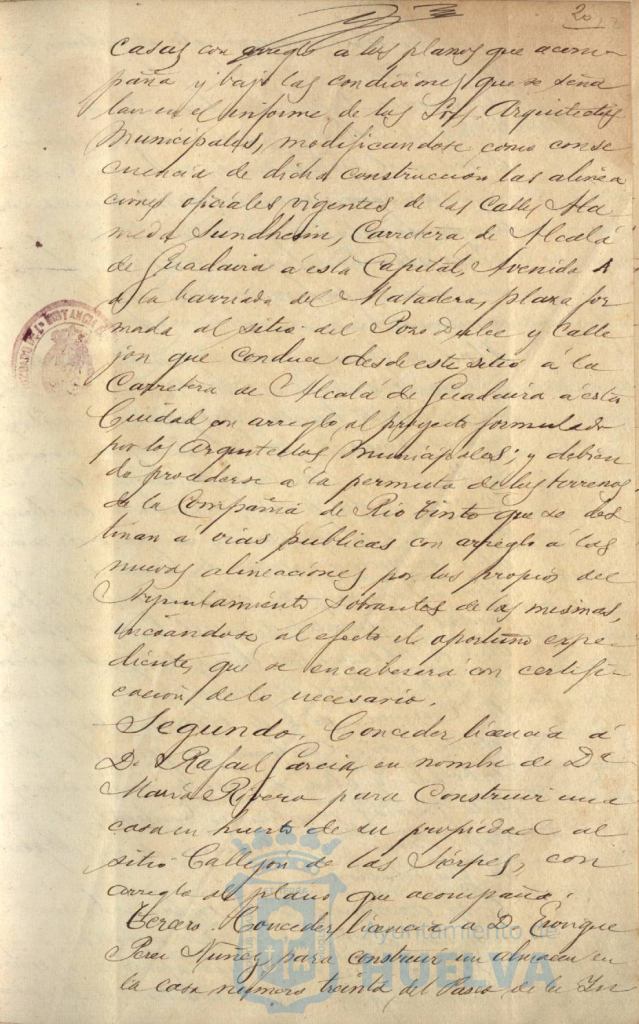 20
casas con arreglo á los planos que acom-
paña y bajo las condiciones que se seña
lan en el informe de los Sres. Arquitectos
Municipales, modificandose como conse
cuencia de dicha construcción las alinea
ciones oficiales vigentes de las Calles Ala
meda Sundheim, Carretera de Alcalá
de Guadaira a esta Capital, Avenida A
de la barriada del Matadero, plaza for
mada al sitio del Pozo Dulce y Calle
jon que conduce desde este sitio á la
Carretera de Alcalá de Guadaira á esta
Ciudad con arreglo al proyecto formulado
por los Arquitectos Municipales; y debien
do procederse á la permuta de los terrenos
de la Compañia de Rio Tinto que se des
tinan á vias públicas con arreglo á las
nuevas alineaciones por los propios del
Ayuntamiento sobrantes de las mismas,
incoandose al efecto el oportuno expe-
diente, que se encabezará con certifi-
cación de lo necesario.
Segundo. Conceder licencia á
Dn Rafael Garcia, en nombre de Da
Maria Rivero para construir una
casa en huerto de su propiedad al
sitio Callejon de las Sierpes, con
arreglo al plano que acompaña.
Tercero. Conceder licencia a D. Enrique
Perez Nuñez para construir un almacen en
la casa número treinta del Paseo de la
Ayuntamiento de
HUELVA